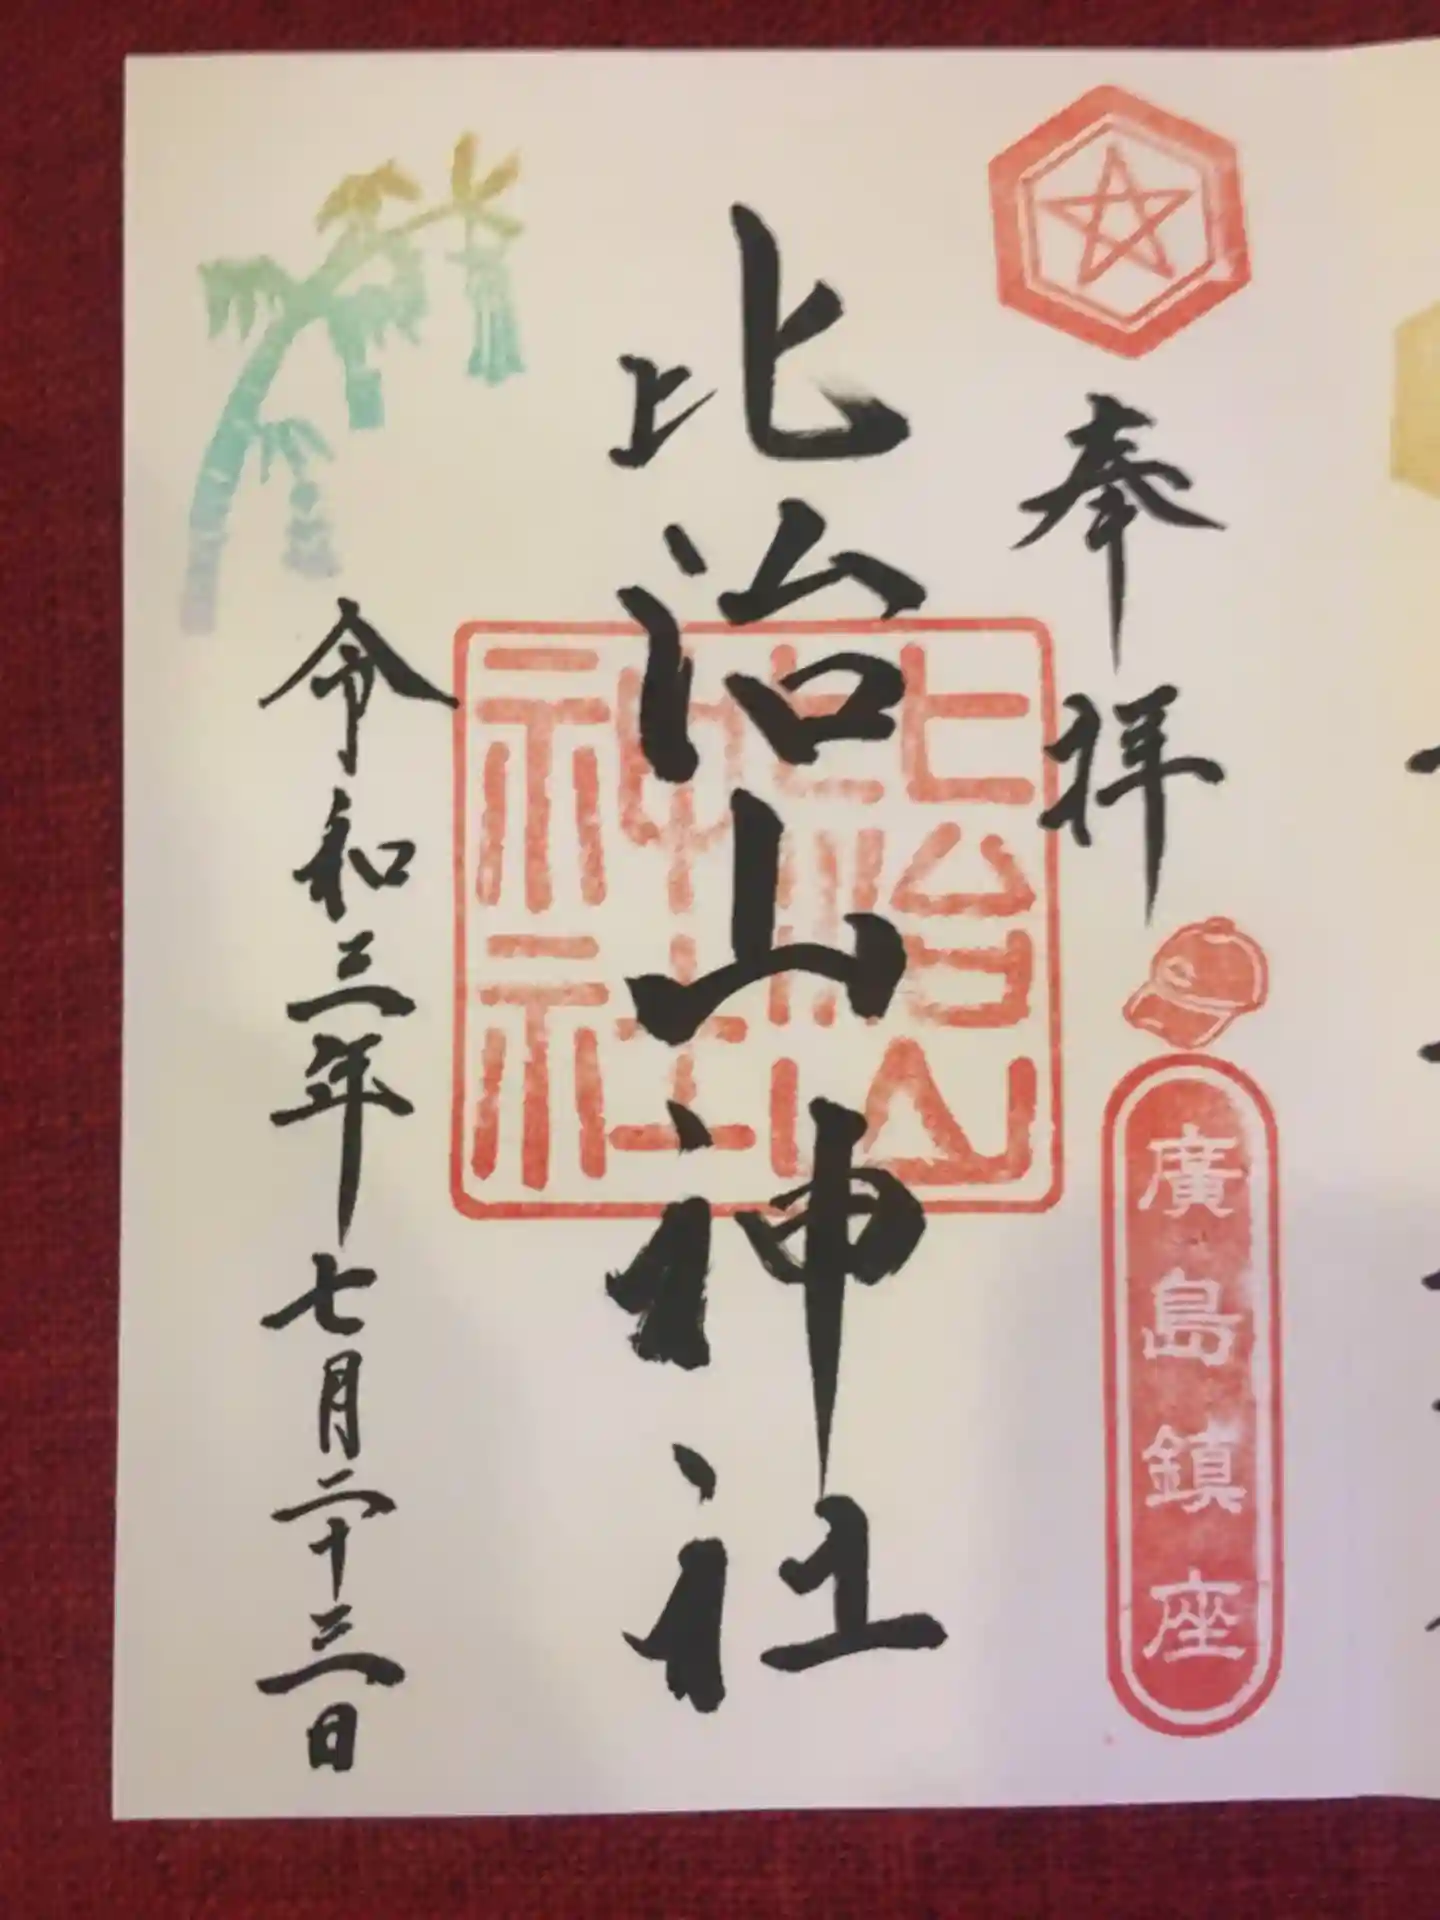 奉拝
廣島鎮座
比治山神社
比治山神社
令和三年七月二十三日